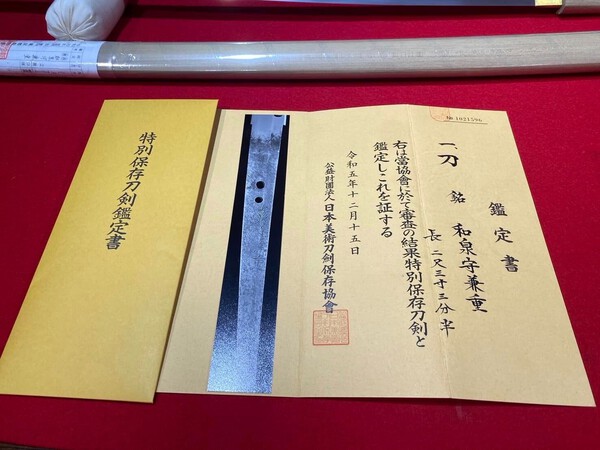 特別保存刀剣鑑定書
№ 1021596
鑑定書
一、刀 銘 和泉守兼重
長 二尺三寸三分半
右は當協會に於て審査の結果特別保存刀剣と
鑑定しこれを証する
令和五年十二月十五日
公益財團法人 日本美術刀劍保存協會